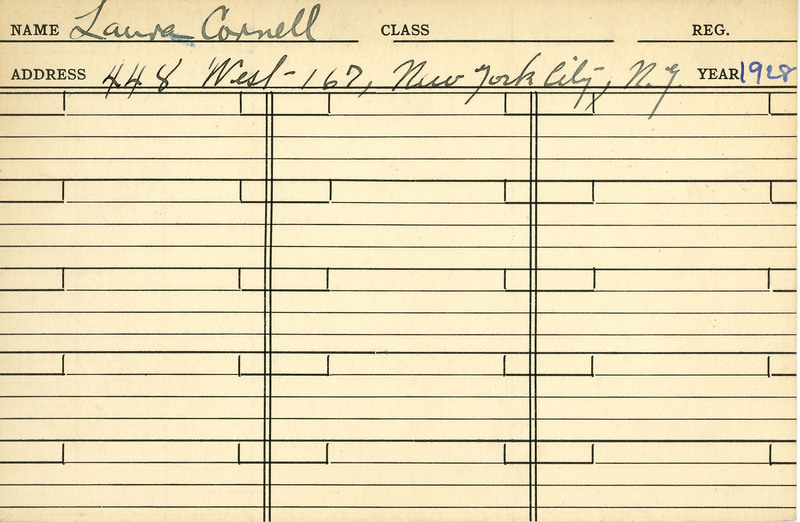 NAME Laura Cornell CLASS REG.
ADDRESS 448 West - 167, New York City, N.Y. YEAR 1928